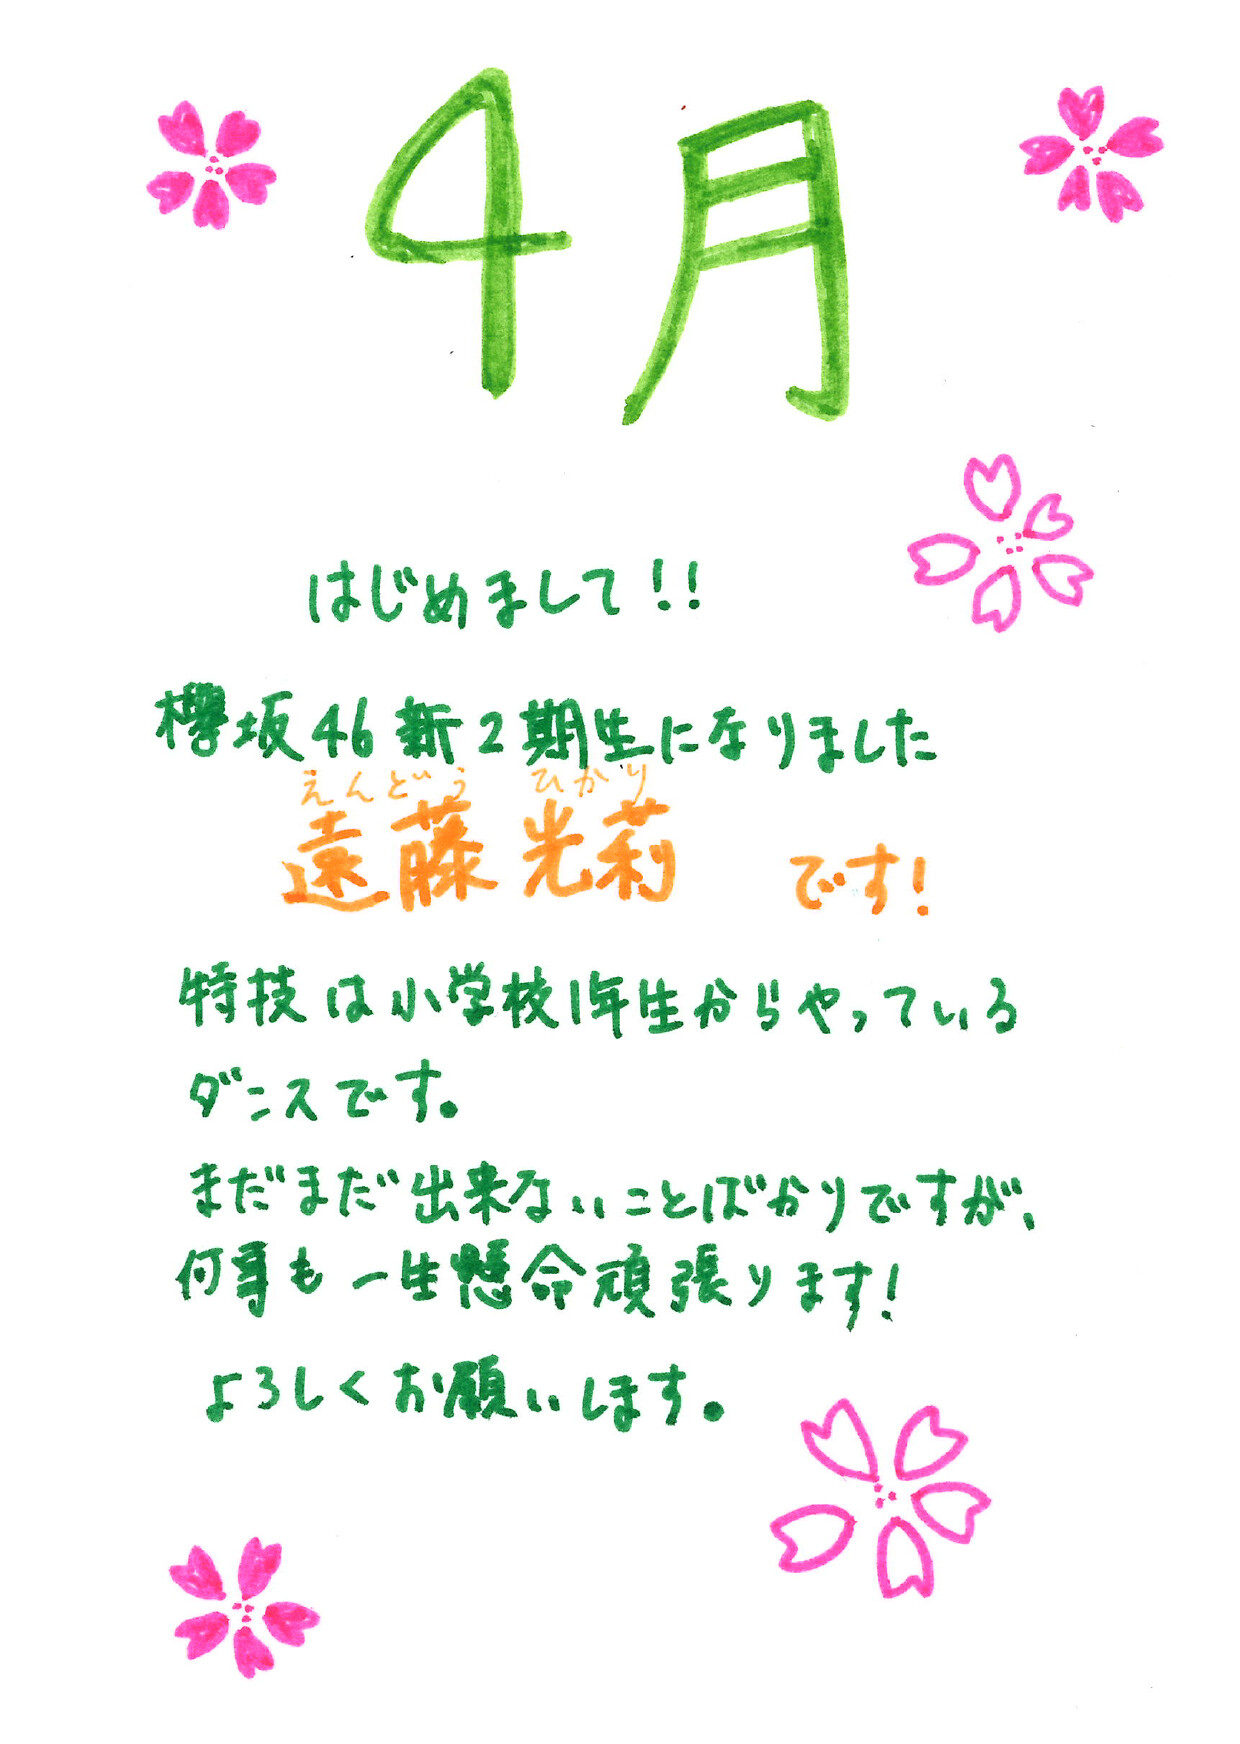 4月
はじめまして!!
欅坂46新2期生になりました
えんどう ひかり
遠藤 光莉 です!
特技は小学校1年生からやっている
ダンスです。
まだまだ出来ないことばかりですが、
何事も一生懸命頑張ります!
よろしくお願いします。